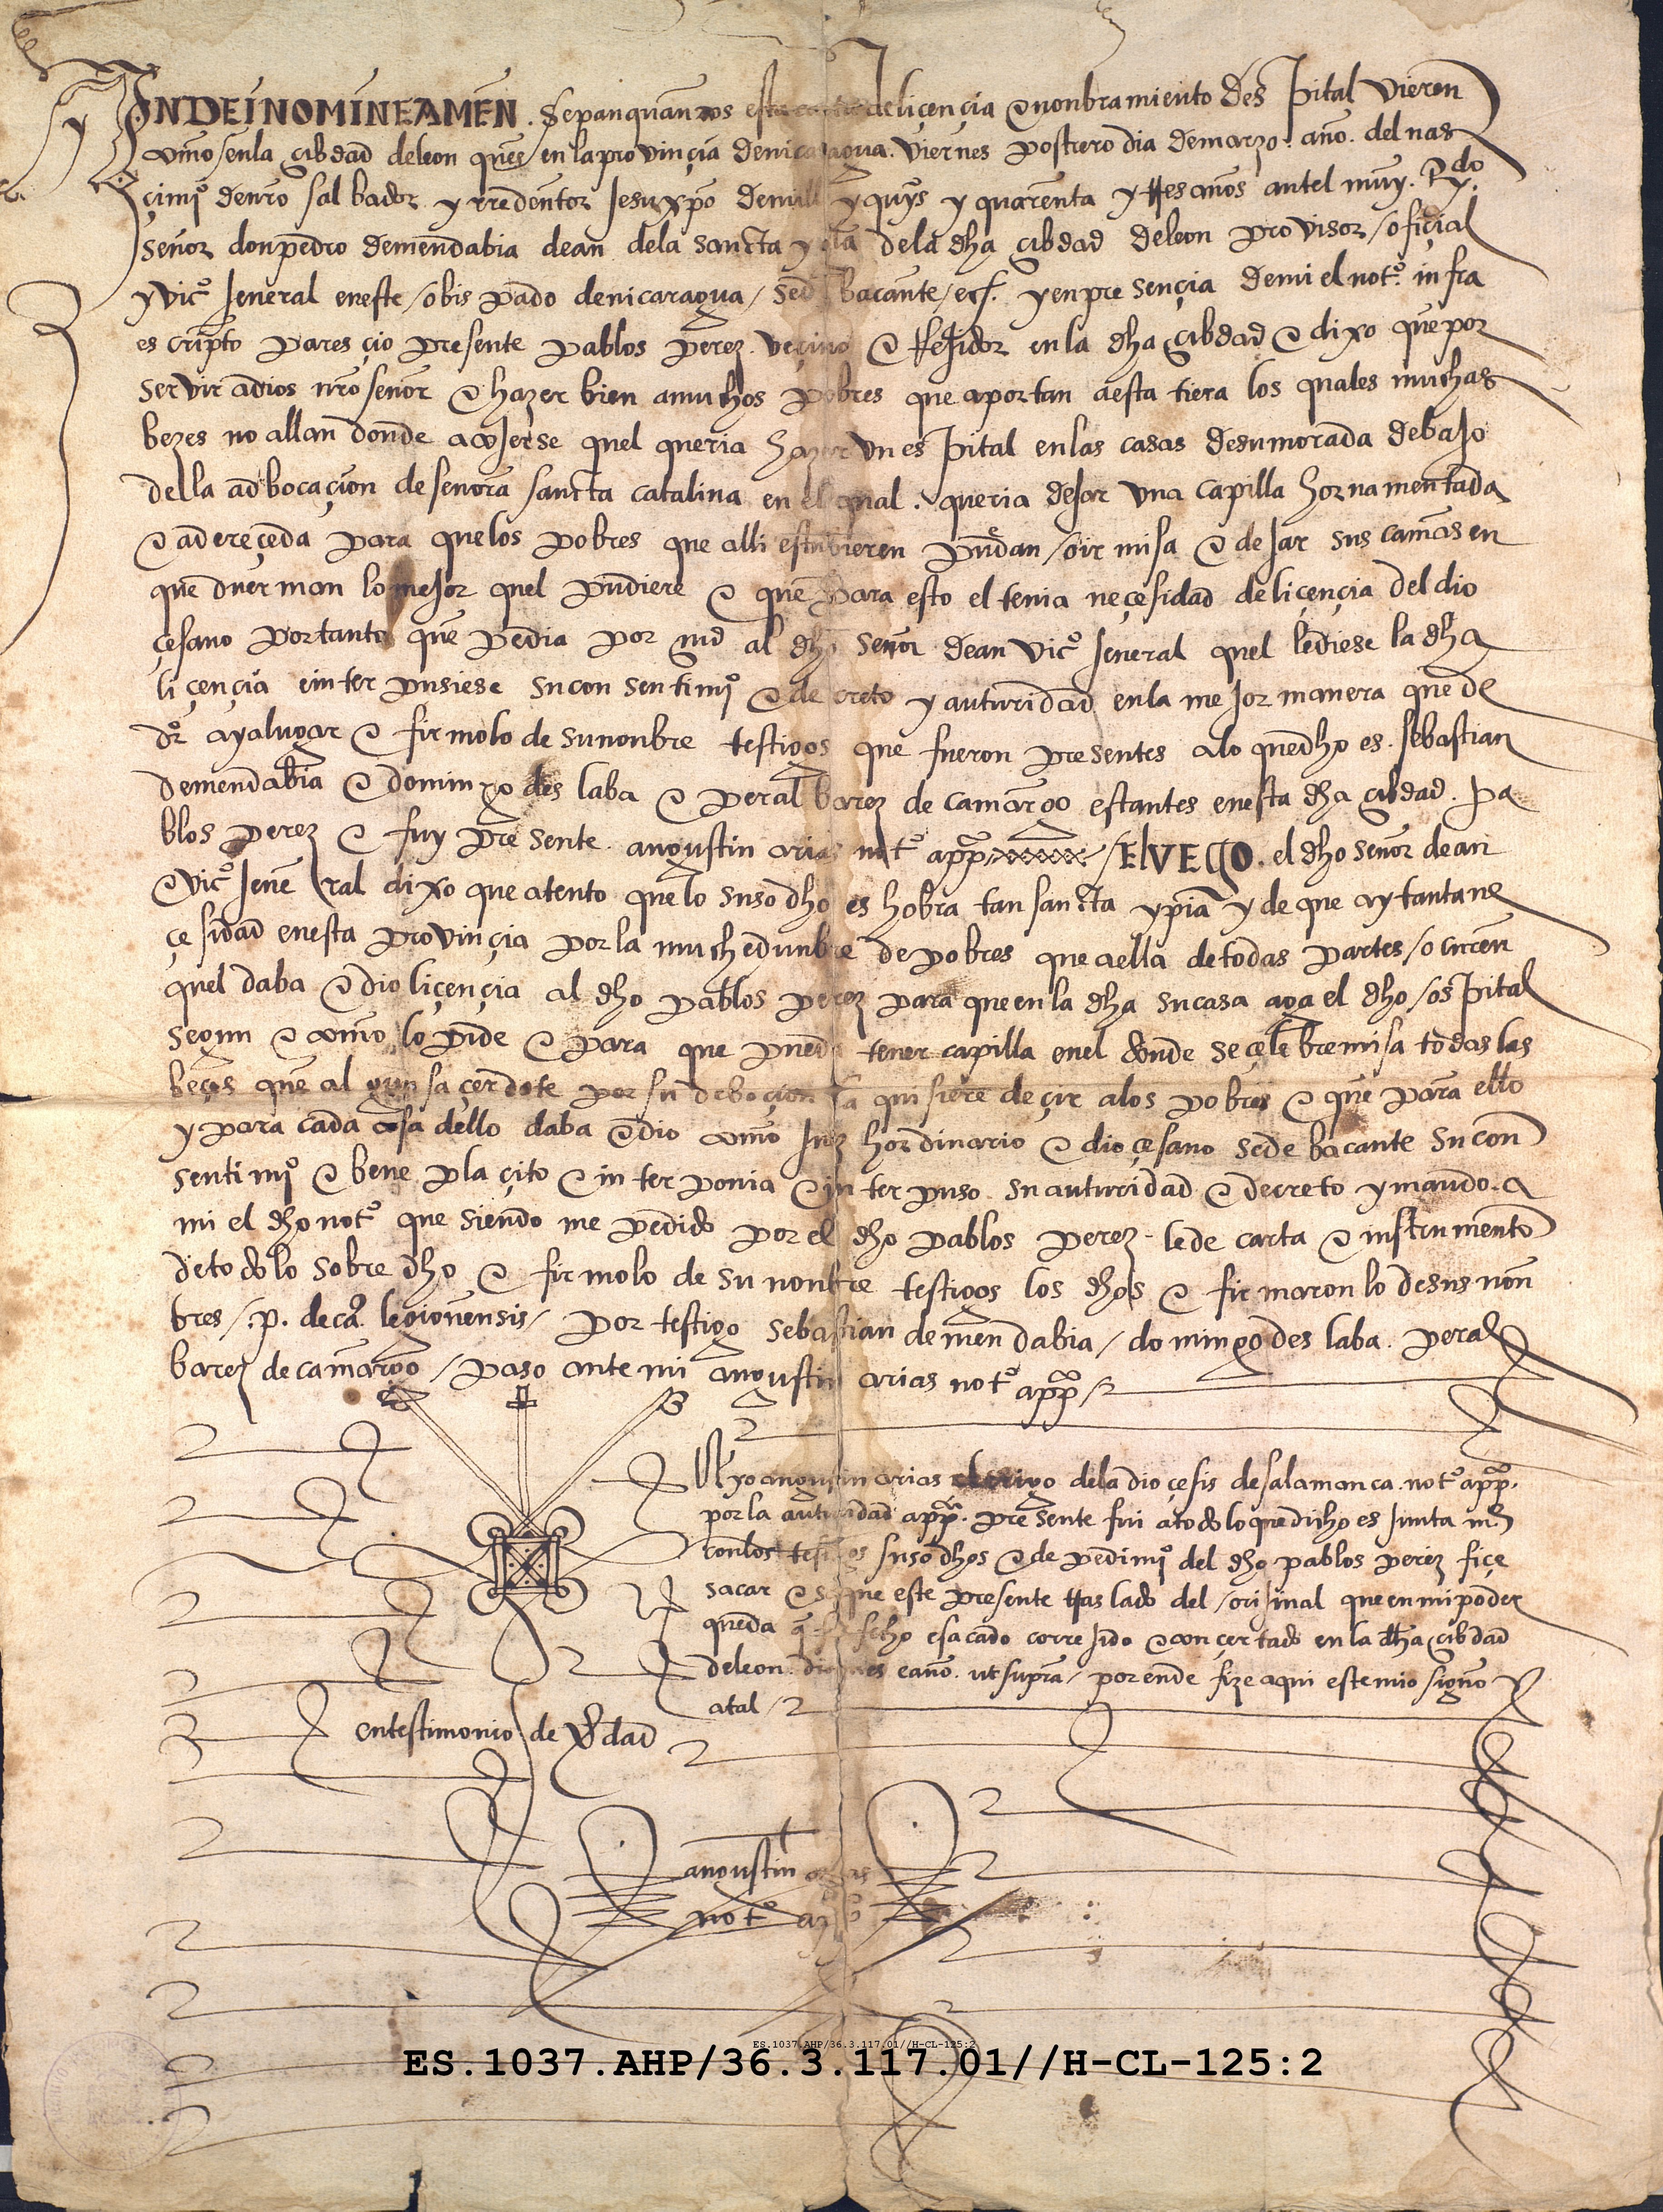 IN DEI NOMINE AMEN. Sepan quantos esta carta de liçençia e nonbramiento des pital vieren
como en la çibdad de leon ques en la provinçia de nicaragua. viernes postrero dia de marzo. año. del nas
çimiº de nro salbador y rredentor Jesuxpo de mill y quiºs y quarenta y tres años antel muy. Rdo.
señor don pedro de mendabia dean de la sancta yglia de la dha çibdad de leon provisor / ofiçial
y vicº Jeneral en este / obispado de nicaragua / sede bacante / ecª. y en presençia de mi el notº. infra
escripto paresçio presente pablos perez. veçino e rrejidor en la dha çibdad e dixo que por
servir a dios nro señor e hazer bien a muchos pobres que aportan a esta tiera los quales muchas
bezes no allan donde acojerse quel queria hazer un espital en las casas de su morada debajo
de lla adbocaçion de señora sancta catalina en el qual. queria dejar una capilla hornamentada
e adereçeda para que los pobres que alli estubieren puedan / oir misa e dejar sus camas en
que duerman lo mejor quel pudiere e que para esto el tenia neçesidad de liçençia del dio
çesano por tanto que pedia por md al dho señor dean vicº Jeneral quel le diese la dha
liçençia e interpusiese su consentimiº e decreto y auturidad en la mejor manera que de
drº aya lugar e firmolo de su nonbre testigos que fueron presentes a lo que dho es. sebastian
de mendabia e domingo des laba e peralbarez de camargo estantes en esta dha çibdad. pa
blos perez e fuy presente. angustin arias notº appº / E lVEGO. el dho señor dean
e vicº Jene ral dixo que atento que lo susodho es hobra tan sancta y pia y de que ay tanta ne
çesidad en esta provinçia por la muchedunbre de pobres que a ella de todas partes / ocurren
quel daba e dio liçençia al dho pablos perez para que en la dha su casa aga el dho / ospital
segun e como lo pide e para que pueda tener capilla en el donde se çelebre misa todas las
beçes que algun saçerdote por su deboçion la quisiere deçir a los pobres e que para ello
y para cada cosa dello daba e dio como Juez hordinario e dioçesano sede bacante su con
sentimiº e beneplaçito e interponia e interpuso su auturidad e decreto y mando. a
mi el dho notº que siendo me pedido por el dho pablos perez. le de carta e instrumento
de todo lo sobre dho e firmolo de su nonbre testigos los dhos e firmaron lo de sus non
bres /. p. decaº. legionensis / por testigo sebastian de mendabia / domingo des laba. peral
barez de camargo / paso ante mi angustin arias notº appº /
E yo angustin arias clerigo de la dioçesis de salamanca. notº appº.
por la auturidad appª. presente fui a todo lo que dicho es Junta mte
con los testigos susodhos e de pedimiº del dho pablos perez fiçe
sacar e saque este presente traslado del / orijinal que en mi poder
queda fecho e sacado correjido e conçertado en la dha çibdad
de leon. dia mes e año. ut supra / por ende fize aqui este mio signo
a tal /
en testimonio de vdad
angustin arias
notº appº
ES.1037.AHP/36.3.117.01//H-CL-125:2
ES.1037.AHP/36.3.117.01//H-CL-125:2